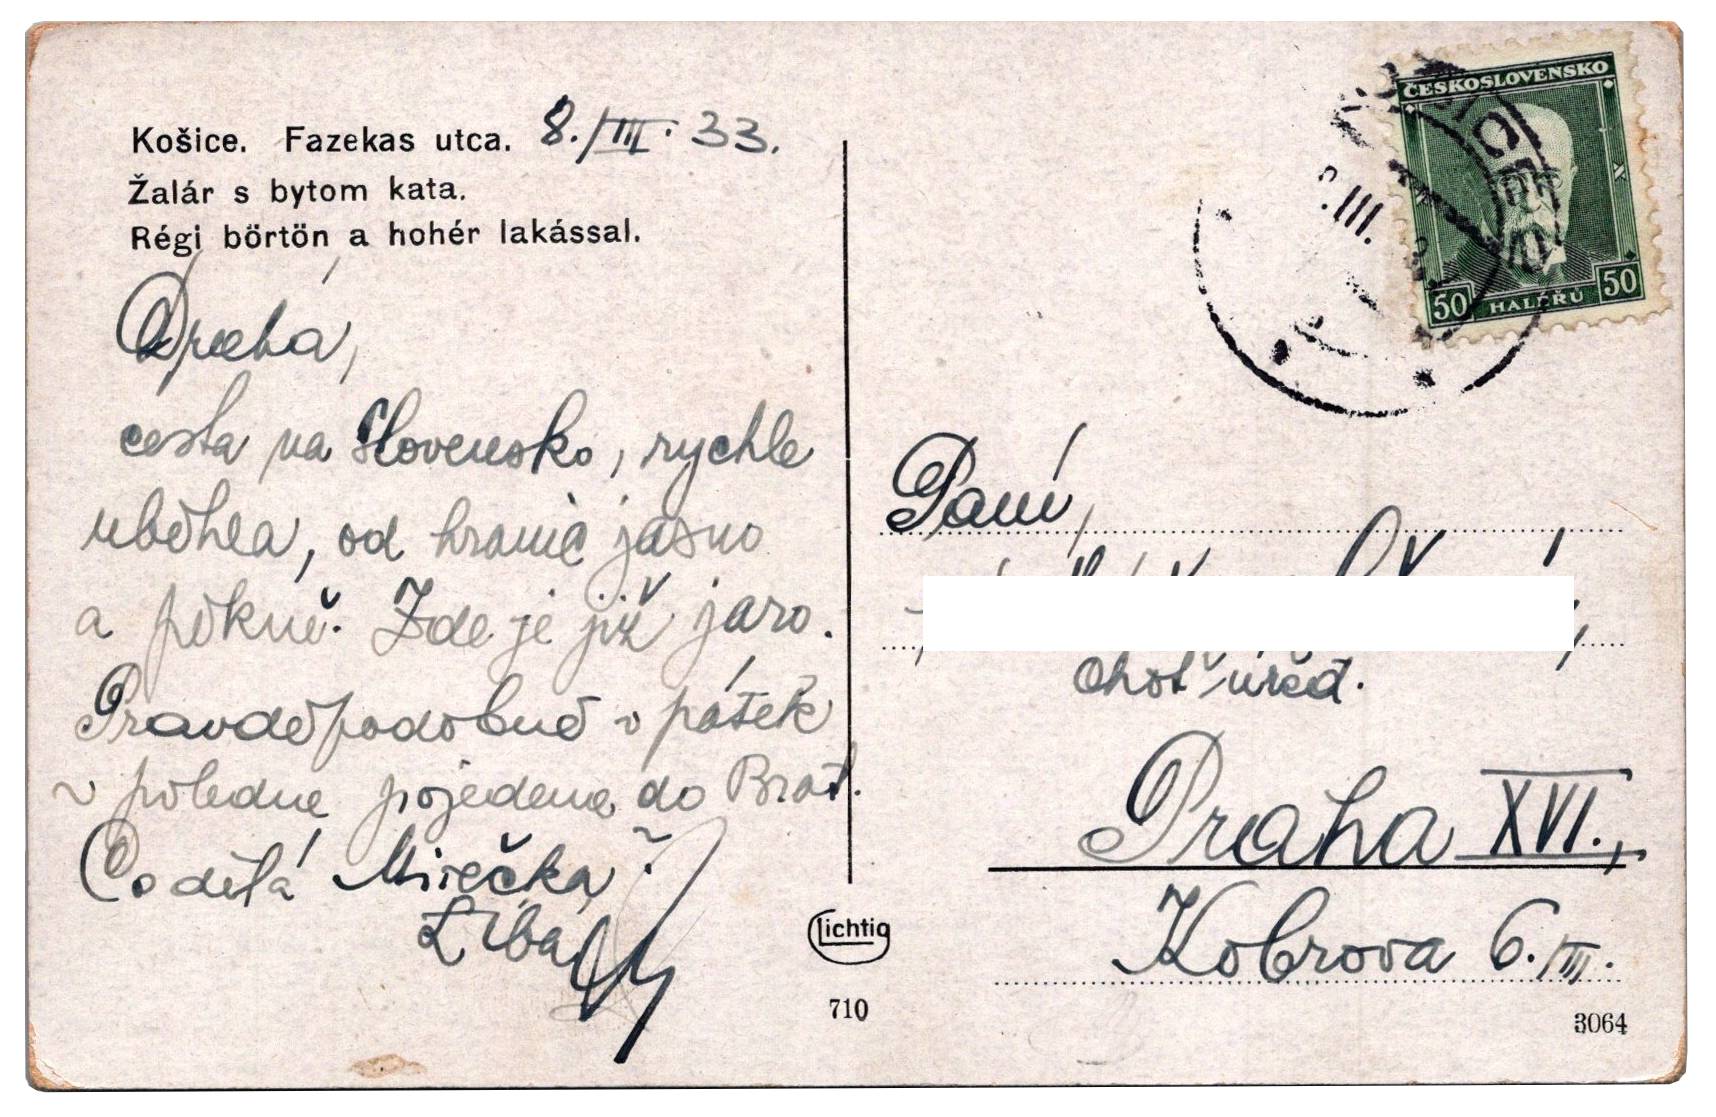 Košice. Fazekas utca. 8./III. 33.
Žalár s bytom kata.
Régi börtön a hohér lakással.
Drahá,
cesta na Slovensko, rychle
uběhla, od hranic jasno
a pěkně. Zde je již jaro.
Pravděpodobně v pátek
v poledne pojedeme do Brat.
Co dělá Mirečka?
Líbá
ČESKOSLOVENSKO
50 HALÉŘŮ 50
III.
Paní,
choť úřed.
Praha XVI.,
Kobrova 6./III.
Lichtig
710
3064